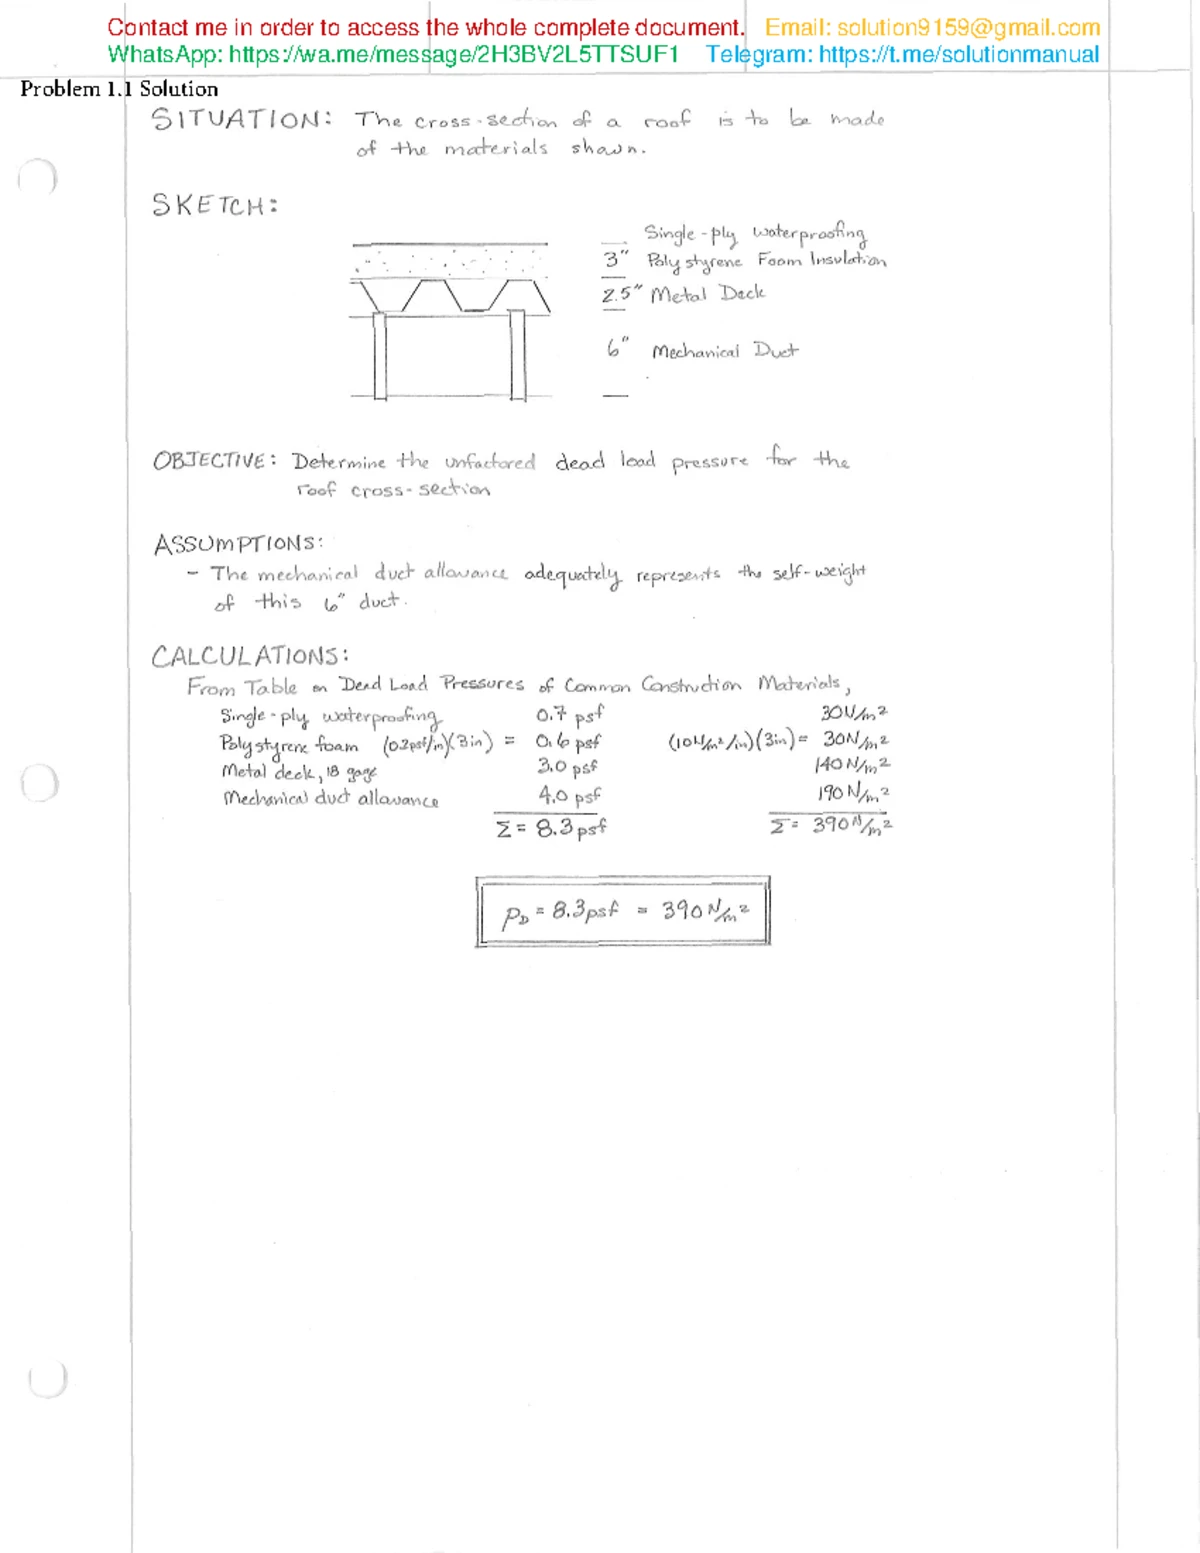 Contact me in order to access the whole complete document. Email: solution9159@gmail.com
WhatsApp: https://wa.me/message/2H3BV2L5TTSUF1 Telegram: https://t.me/solutionmanual
Problem 1.1 Solution
SITUATION: The cross-section of a roof is to be made
of the materials shown.
SKETCH:
Single-ply waterproofing
3" Polystyrene Foam Insulation
2.5" Metal Deck
6" Mechanical Duct
OBJECTIVE: Determine the unfactored dead load pressure for the
roof cross-section
ASSUMPTIONS:
- The mechanical duct allowance adequately represents the self-weight
of this 6" duct.
CALCULATIONS:
From Table on Dead Load Pressures of Common Construction Materials,
Single-ply waterproofing 0.7 psf 30N/m²
Polystyrene foam (0.2psf/in)(3in) = 0.6 psf (10N/m²/in)(3in) = 30N/m²
Metal deck, 18 gage 3.0 psf 140N/m²
Mechanical duct allowance 4.0 psf 190N/m²
Σ = 8.3psf Σ = 390N/m²
PD = 8.3psf = 390N/m²